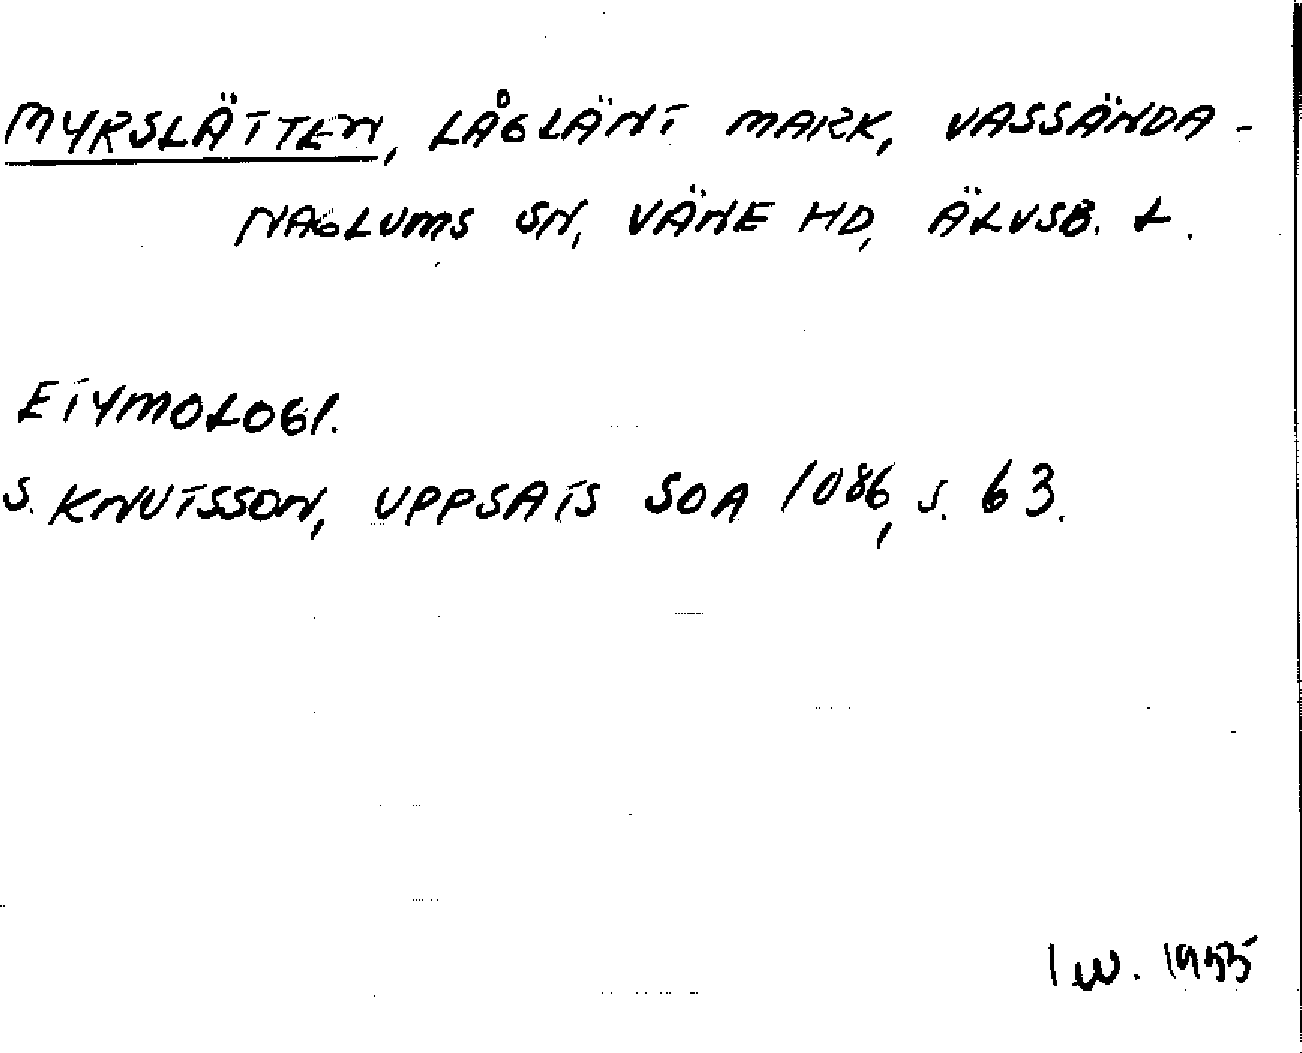 MYRSLÄTTEN, LÅGLÄNT MARK, VASSÄNDA-
NAGLUMS SN, VÄNE HD, ÄLVSB. L.
ETYMOLOGI.
S. KNUTSSON, UPPSATS SOA 1086, S. 63.
IW. 1955